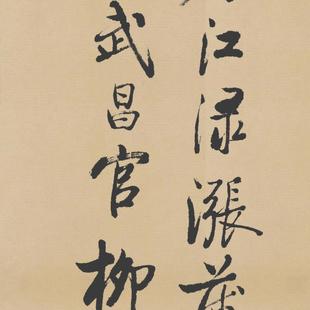 江渌漲
武昌官柳